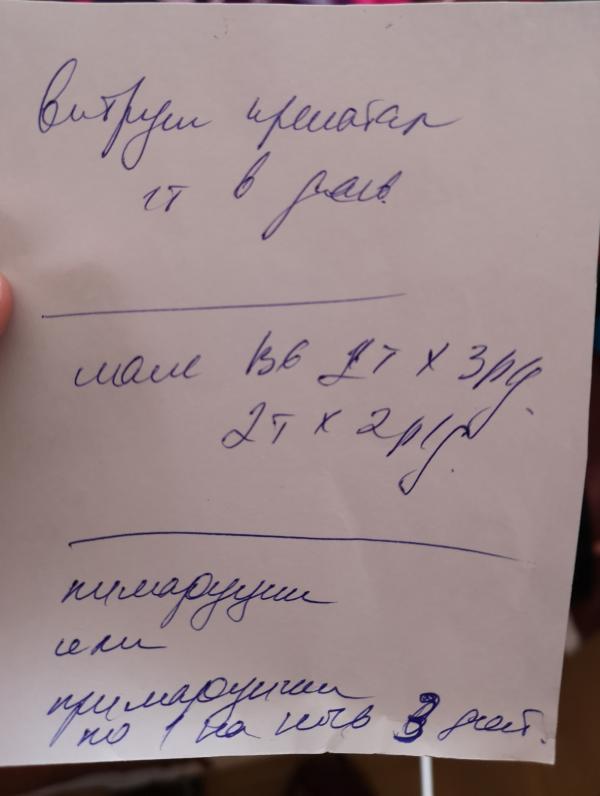 Витрум пренатал
1т в день
магне В6 2т х 3р/д.
2т х 2р/д.
пимафуцин
или
примафунгин
по 1 на ночь 3 дня.